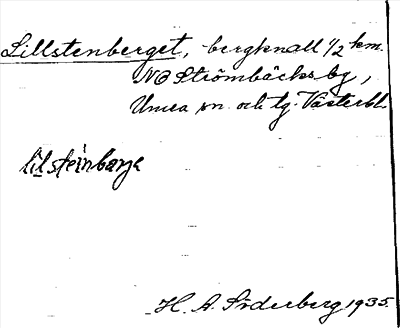 Lillstenberget, bergknall 1/2 km.
NO Strömbäcks by,
Umeå sn. och tg. Västerb.
lilsteinbarje
H. A. Söderberg 1935.